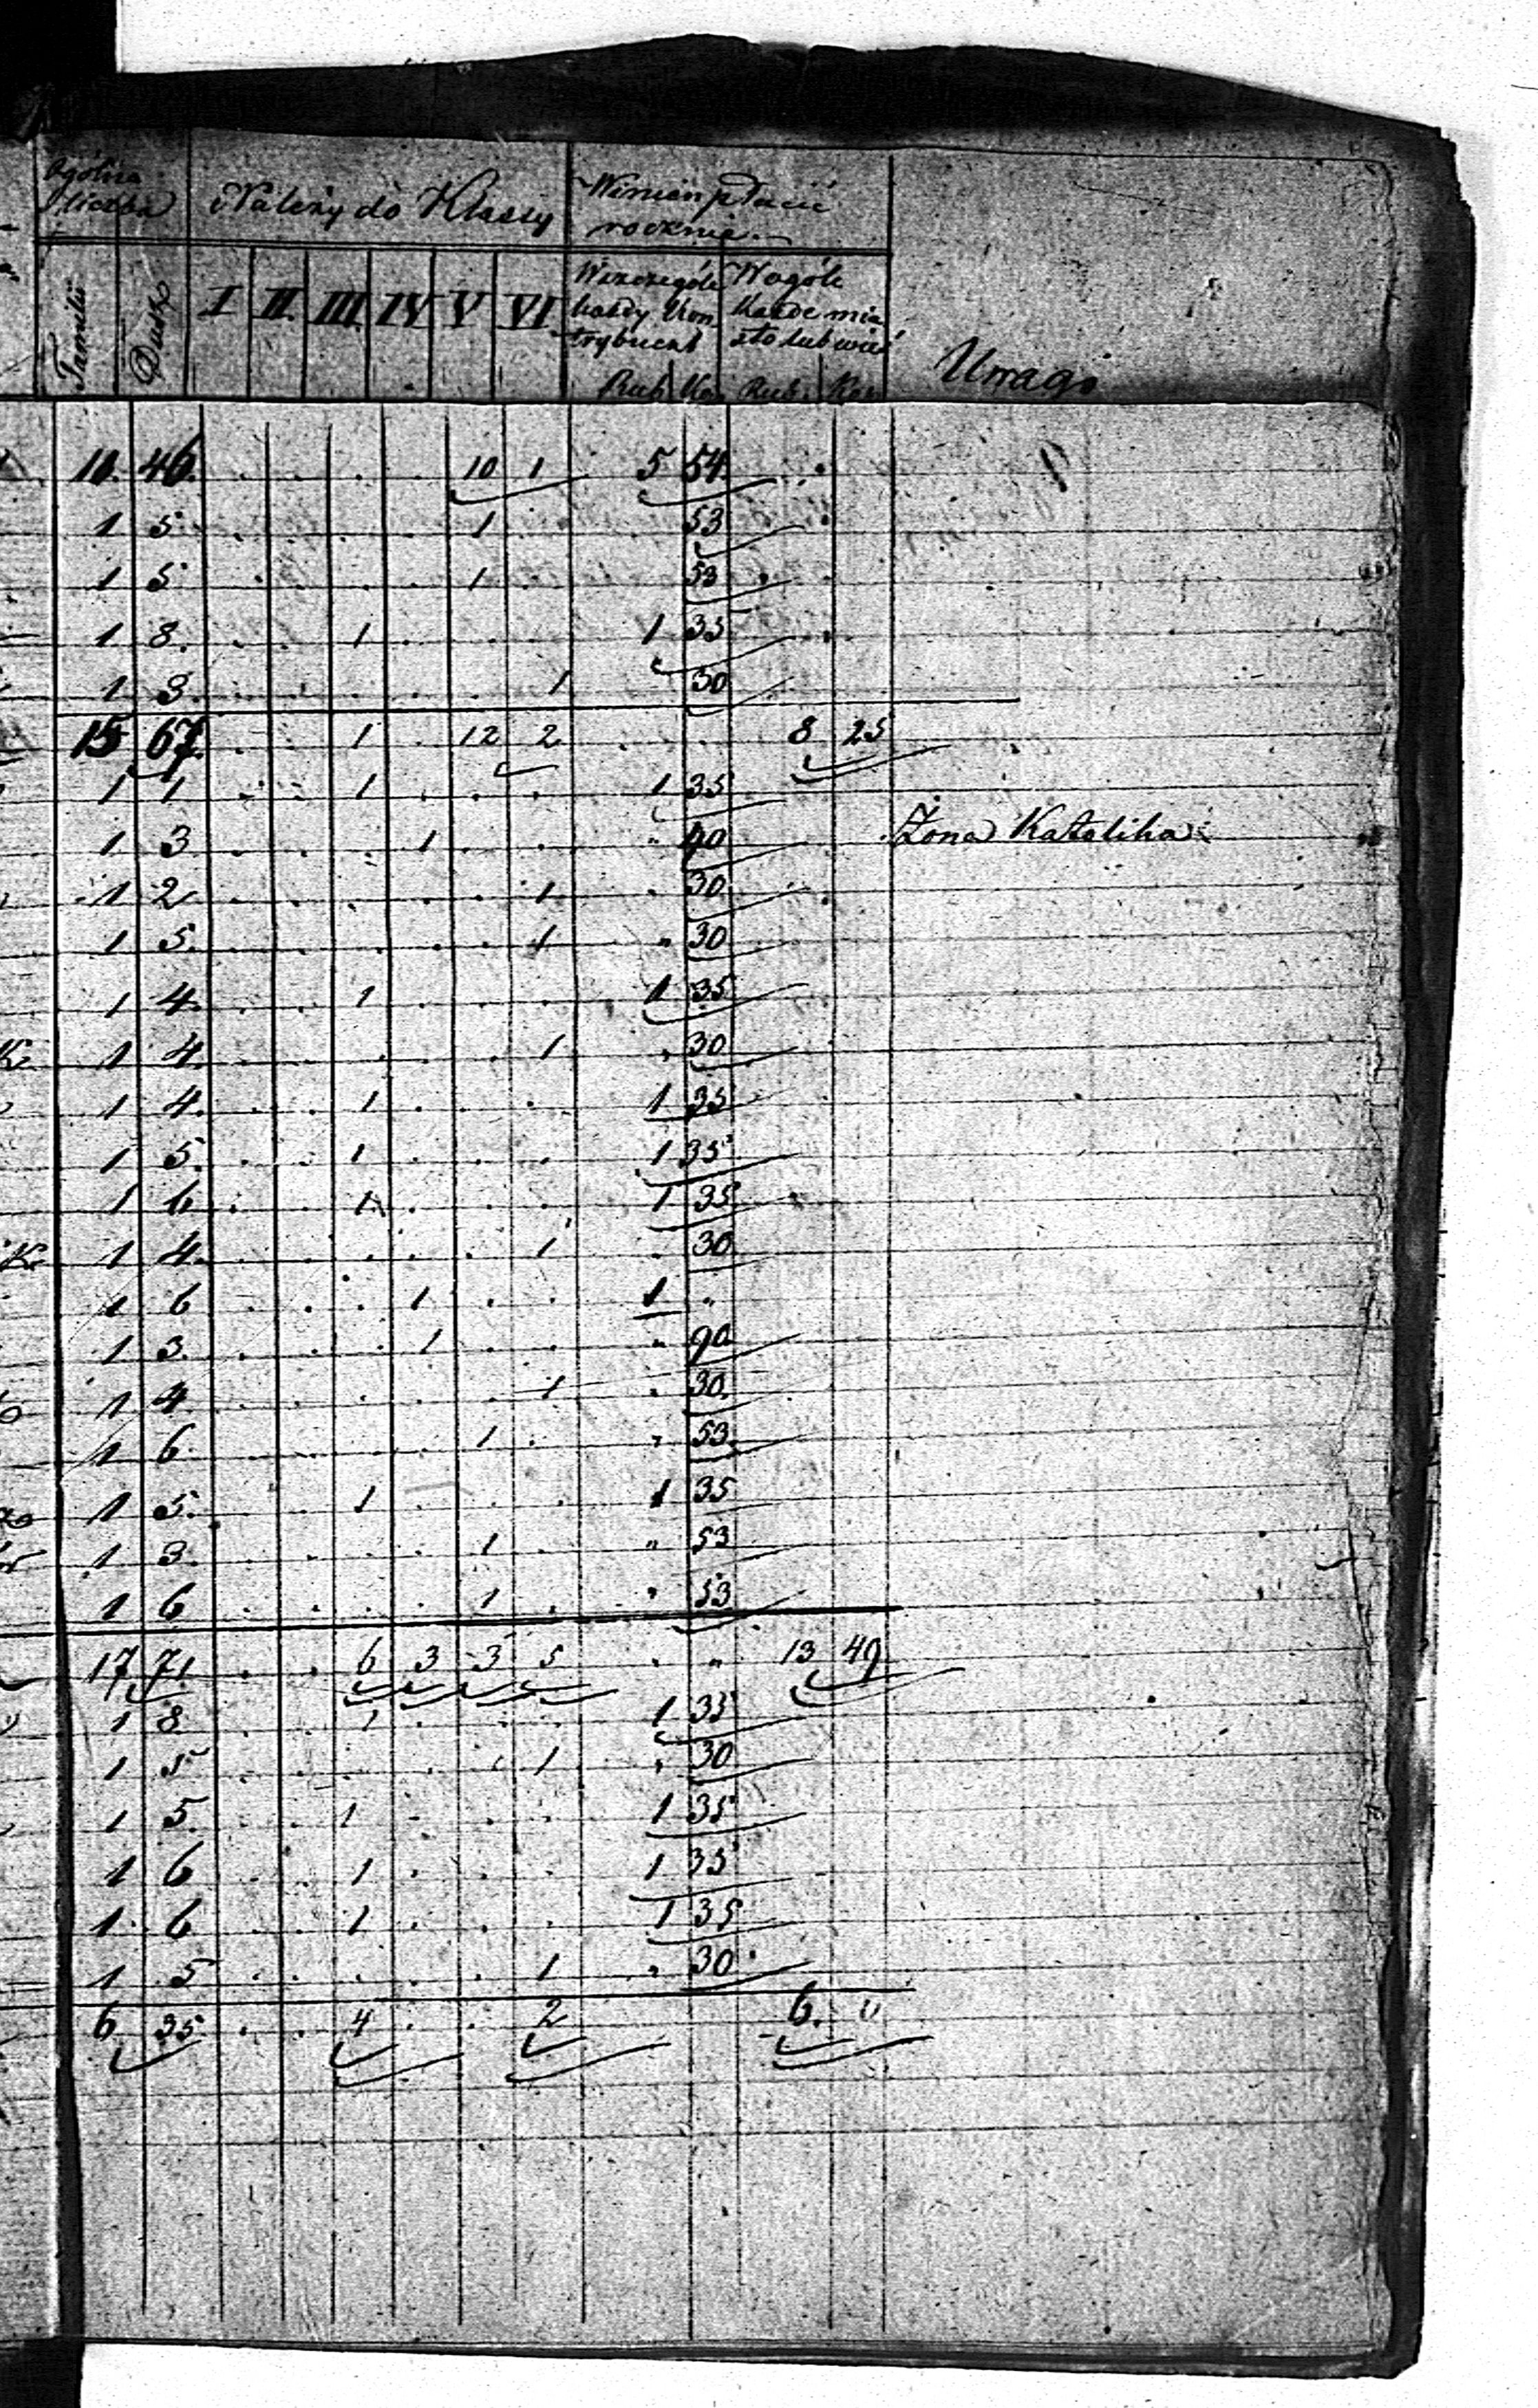 Ogólna liczba
Należy do Klassy
Winien płacić rocznie
Familii Dusz I II III IV V VI
Wszczególe każdy Kontrybuent Rub. Ko.
Wogóle każde miasto lub wieś Rub. Kop.
Uwagi
11. 46. . . . . 10 1 5 54.
1 5 . . . . 1 53
1 5 . . . . 1 53
1 8. . . 1 . . . 1 35
1 3. . . . . . 1 30
15 67. . . 1 . 12 2 . . 8 25
1 1 . . 1 . . . 1 35
1 3 . . . 1 . . " 90 Żona Katolika
1 2 . . . . . 1 . 30
1 5. . . . . . 1 " 30
1 4. . . 1 . . . 1 35
K. 1 4. . . . . . 1 . 30
1 4. . . 1 . . . 1 35
1 5. . . 1 . . . 1 35
1 6 . . 1 . . . 1 35
K. 1 4. . . . . . 1 . 30
1 6 . . . 1 . . 1 "
1 3. . . . 1 . . " 90
1 4 . . . . . 1 . 30.
1 6. . . . . 1 . " 53.
1 5. . . 1 . . . 1 35
1 3. . . . . 1 . " 53
1 6 . . . . 1 . " 53
17 71 . . 6 3 3 5 . " 13 49
1 8 . . 1 . . . 1 35
1 5 . . . . . 1 . 30
1 5. . . 1 . . . 1 35
1 6 . . 1 . . . 1 35
1. 6 . . 1 . . . 1 35
1 5 . . . . . 1 " 30
6 35 . . 4 . . 2 6. 0